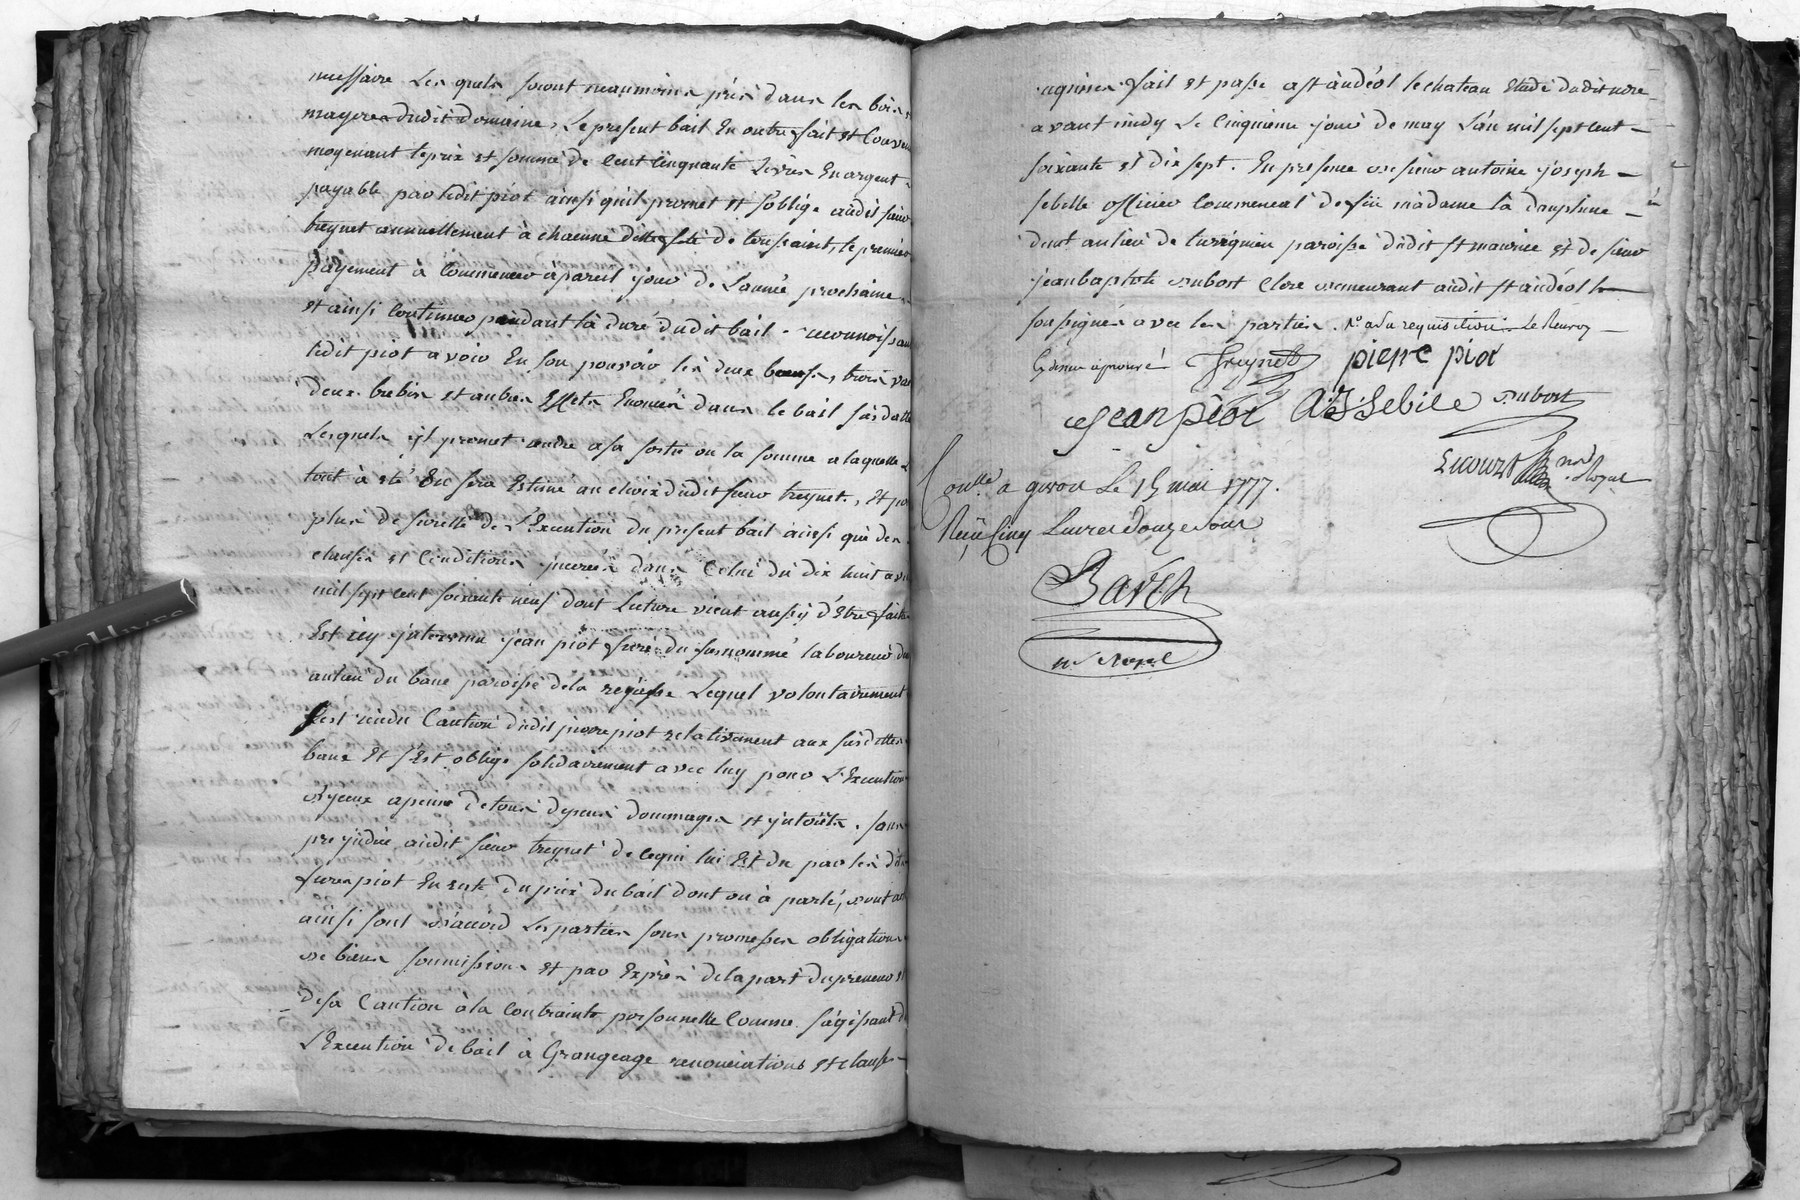 necessaire Lesquels seront neanmoins pris dans les bois
mayeres dudit domaine, Le present bail En outre fait et Convenu
moyenant le prix et somme de Cent Cinquante Livres En argent
payable par ledit piot ainsi quil promet et soblige audit sieur
treynet annuellement à chacune ditte fete de toussaint, le premier
payement à Commencer à pareil jour de Lannée prochaine
et ainsi Continuer pandant la duré dudit bail. reconnoissant
ledit piot avoir En son pouvoir les deux boeufs, trois vaches
deux brebis et autres Effets Enoncés dans le bail susdatte
Lesquels il promet rendre a sa sortie ou la somme a laquelle Le
tout à eté Ou sera Estimé au choix dudit sieur treynet, Et pour
plus de sureté de L'Execution du present bail ainsi que des
clauses et Conditions jnserés dans Celui du dix huit avril
mil sept cent soixante neuf dont Lecture vient aussy d'Etre faite
Est icy jntervenu jean piot frere du susnommé laboureur du
au lieu du banc paroisse de la Lequel volontairement
s'est rendu Caution dudit pierre piot relativement aux susdittes
baux Et s'Est obligé solidairement avec luy pour L'Execution
d'yceux a peine de tous depens dommages et jnterets. sans
prejudice audit sieur treynet de cequi lui Est du par les dits
freres piot En reste du prix du bail dont on à parlé, dont
ainsi sont d'accord Les parties sous promesses obligations
de biens soumissions et par Exprès de la part du preneur et
de sa Caution à la Contrainte personnelle Comme s'agissant de
L'Execution de bail à Grangeage renonciations et clauses
requises. fait et passé a st andéol le chateau Etude dudit nore
avant midy Le Cinquieme jour de may L'an mil sept cent
soixante et dix sept. En presence de sieur antoine joseph
sebille officier Commencal de feüe madame la dauphine
demt au lieu de paroisse dudit st maurice et de sieur
jean baptiste dubost Clerc demeurant audit st andéol
soussignés avec les parties. Ne a sa requisition Le Renvoy
Cy dessus aprouvé treynet pierre piot
jean piot A:J:Sebille dubost
not. Royal
Conllé a givors Le 15 mai 1777.
Reçu Cinq Livres douze sous